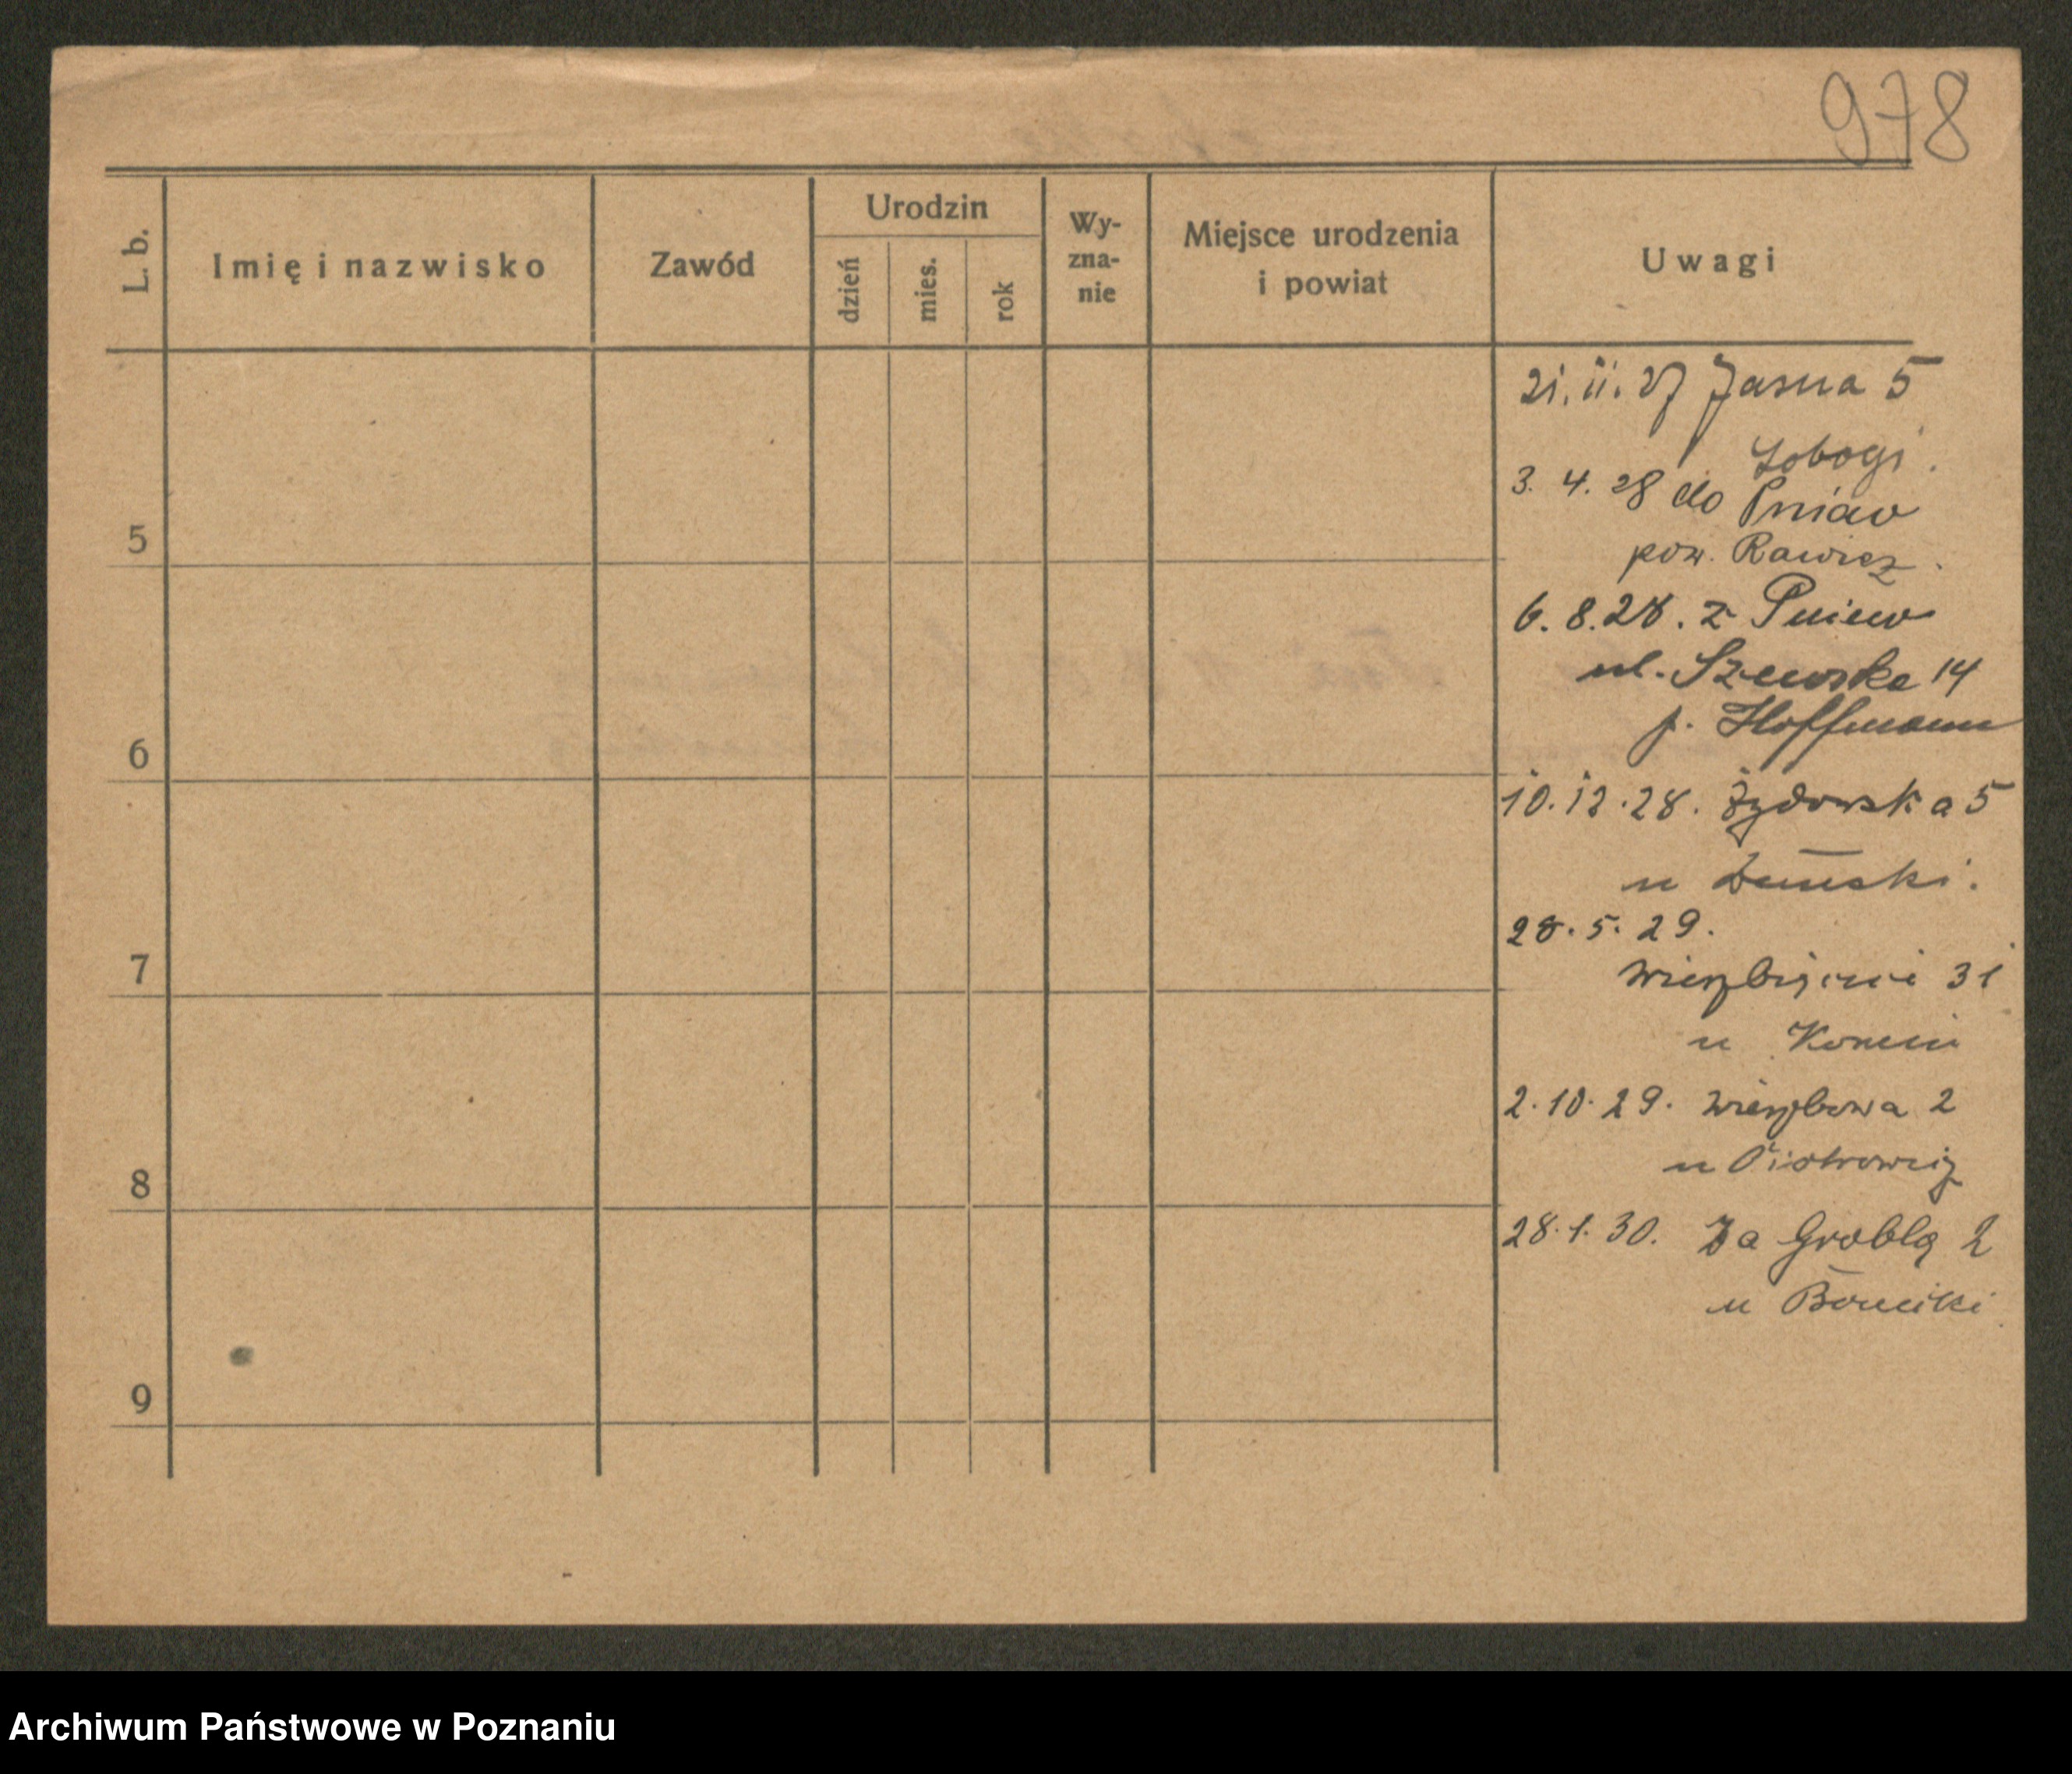 978
L. b.
Imię i nazwisko
Zawód
Urodzin
dzień
mies.
rok
Wy-
zna-
nie
Miejsce urodzenia
i powiat
Uwagi
21. 11. 27 Jasna 5
3. 4. 28 do Pniaw
pow. Rawicz.
6. 8. 28. z Pniew
ul. Szewska 14
p. Hoffmann
10. 12. 28. Żydowska 5
u
28. 5. 29.
Wierzbięcice 31
u
2. 10. 29. Wierzbowa 2
u Piotrowicz
28. 1. 30. Za Groblą 2
u
5
6
7
8
9
Archiwum Państwowe w Poznaniu